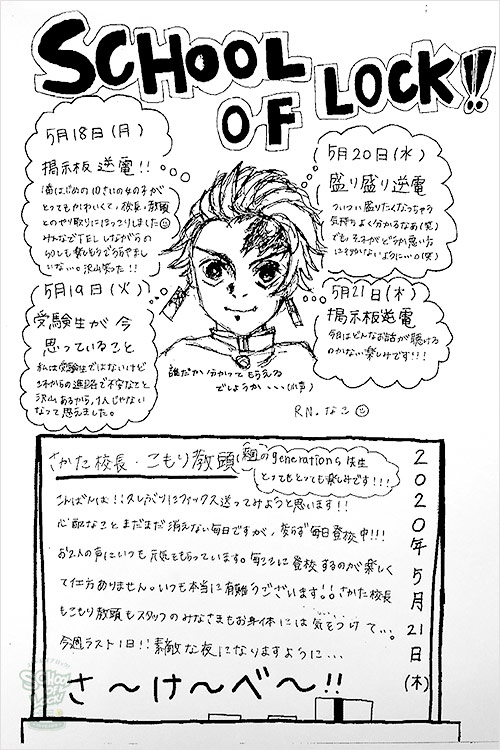 SCHOOL
OF LOCK!!
5月18日(月)
掲示板逆電!!
10さいの女の子が
とってもかわいくて、校長・教頭
とのやり取りにほっこりしました☺
みんなでTELしながらの
いない。沢山笑った!!
5月19日(火)
受験生が今
思っていること
私は受験生ではないけど
これからの進路で不安なこと
沢山あるから、1人じゃない
なって思えました。
5月20日(水)
盛り盛り逆電
ついつい盛りたくなっちゃう
気持ちよく分かるなあ(笑)
5月21日(木)
掲示板逆電
今日はどんなお話が聴ける
のかない楽しみです!!!
誰だか分かってもらえる
でしょうか・・・(小声)
RN.なこ☺
さかた校長・こもり教頭
のgenerations先生
とってもとっても楽しみです!!!
2020年5月21日(木)
こんばんは!!久しぶりにファックス送ってみようと思います!!
心配なことまだまだ消えない毎日ですが、変らず毎日登校中!!!
お2人の声にいつも元気をもらっています。毎日に登校するのが楽しく
て仕方ありません。いつも本当に有難うございます!!さかた校長
もこもり教頭もスタッフのみなさまもお身体には気をつけて...。
今週ラスト1日!!素敵な夜になりますように...
さ〜け〜べ〜!!